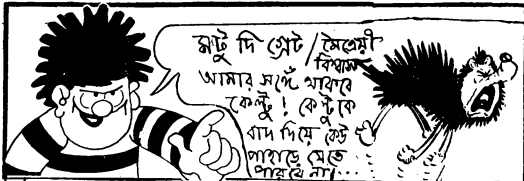 মন্টু দি গ্রেট / মৈত্রেয়ী
বিশ্বাস
আমার সঙ্গে থাকবে
কেল্টু ! কেল্টুকে
বাদ দিয়ে কেউ
পাহাড়ে যেতে
পারবে না!...